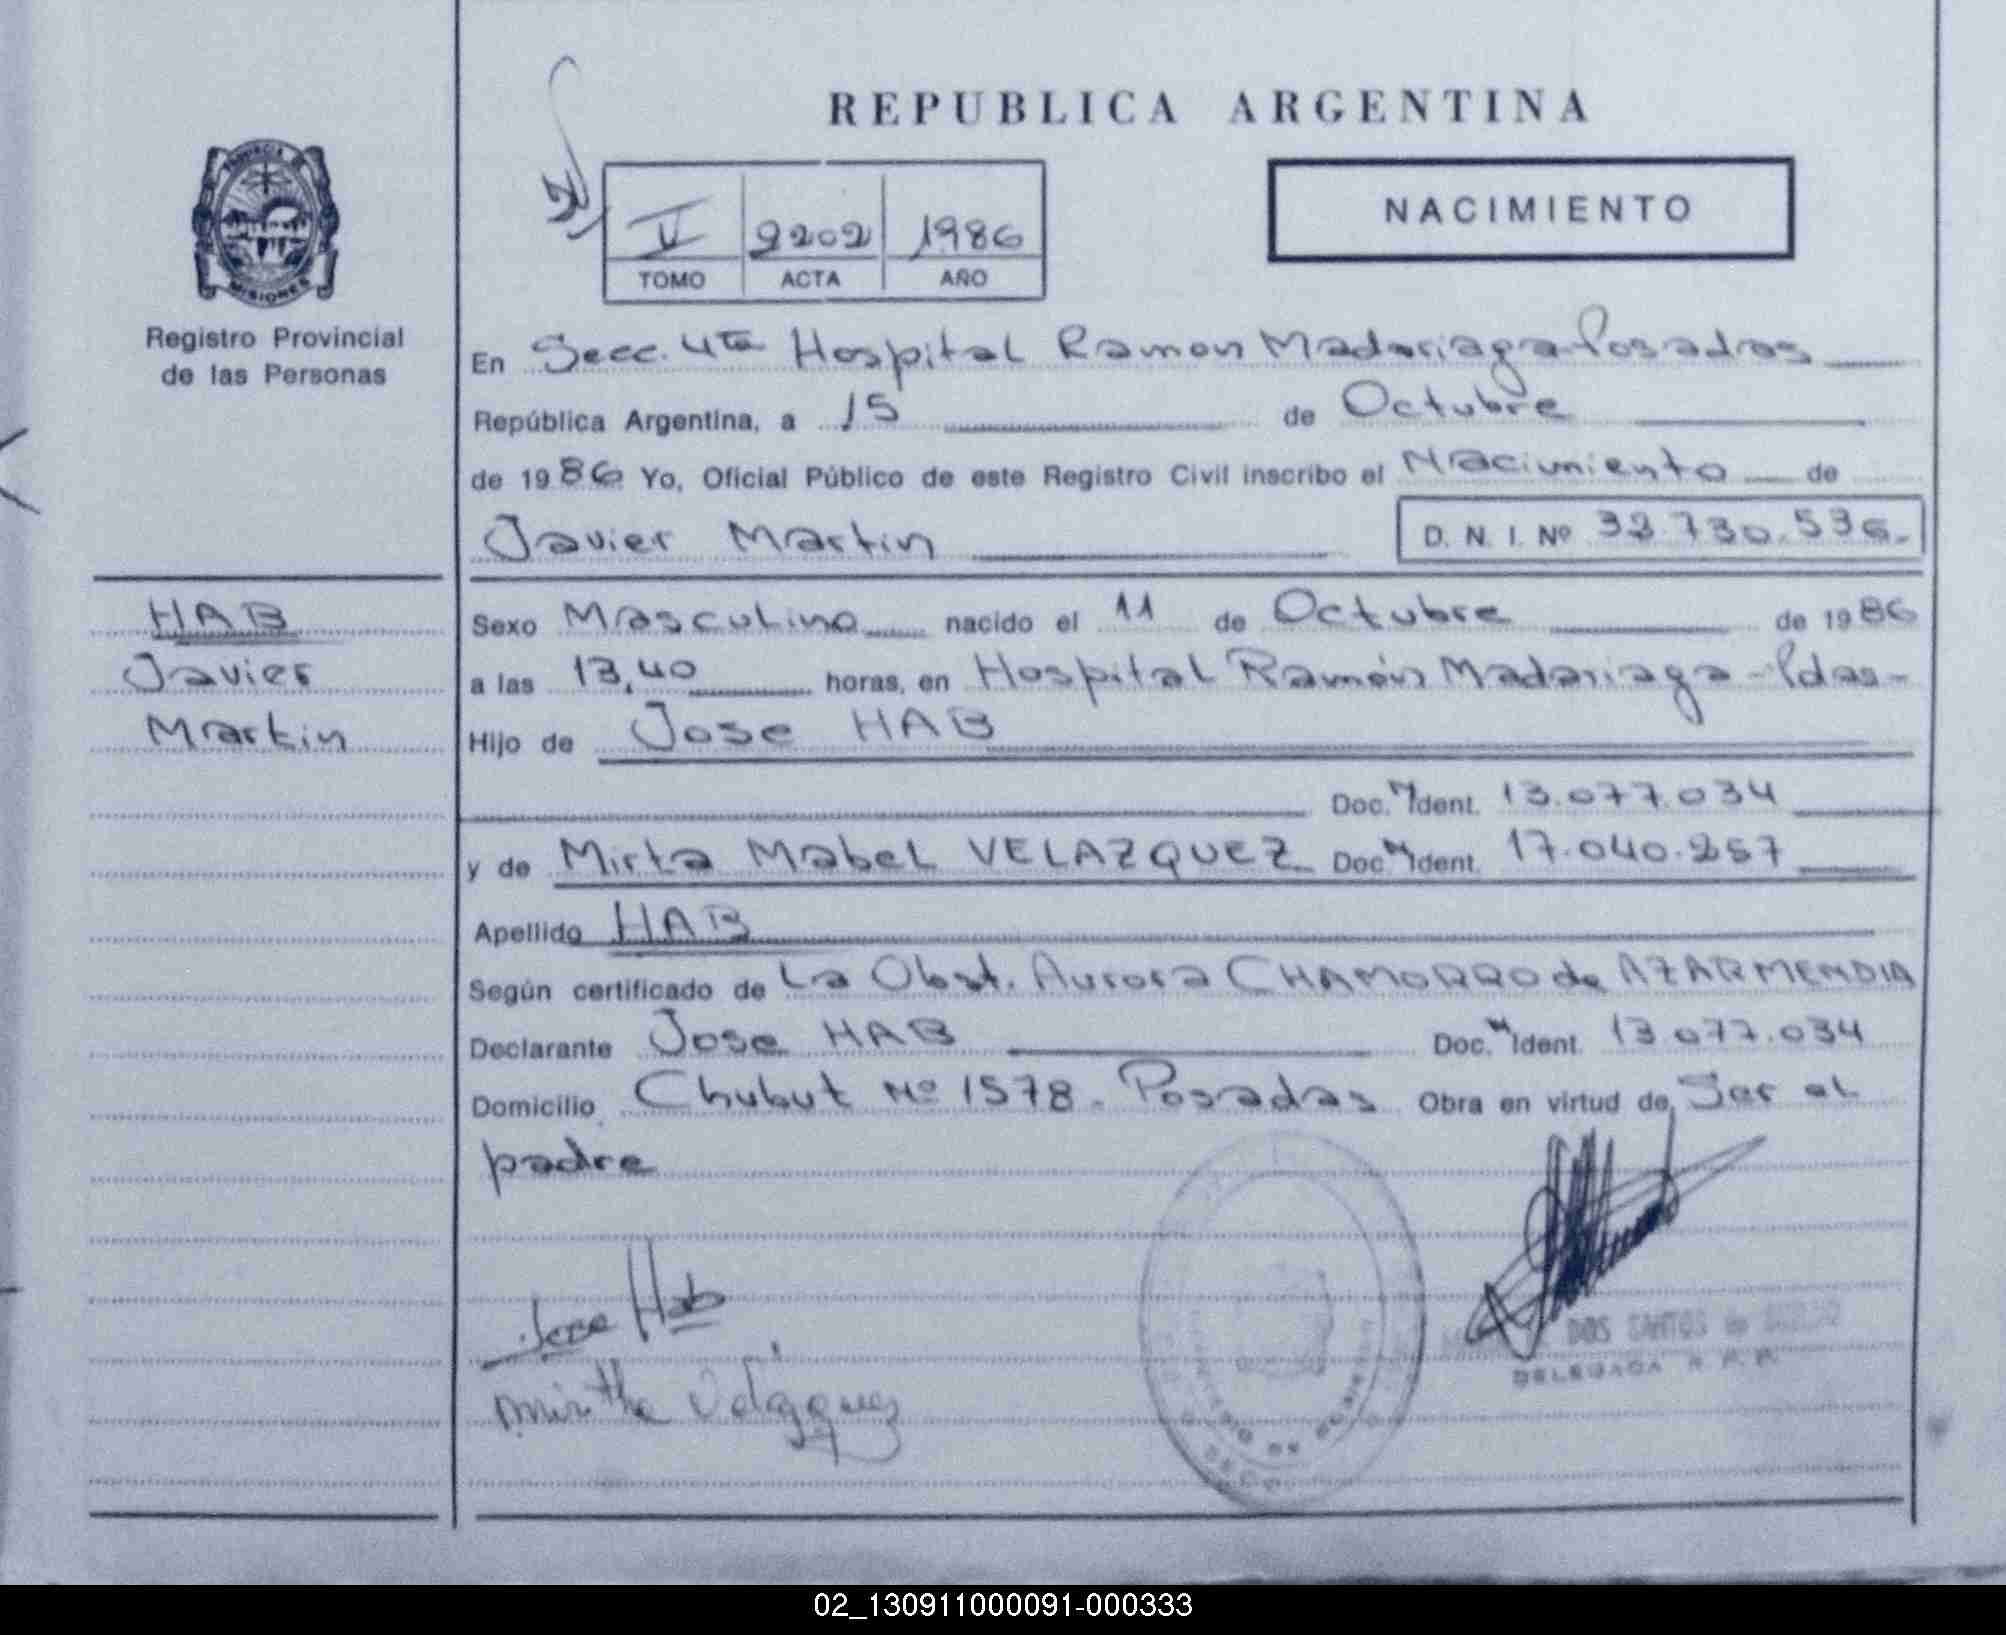 REPUBLICA ARGENTINA
NACIMIENTO
V 2202 1986
TOMO ACTA AÑO
PROVINCIA DE
MISIONES
Registro Provincial
de las Personas
En Secc. 4ta Hospital Ramon Madariaga Posadas
República Argentina, a 15 de Octubre
de 1986 Yo, Oficial Público de este Registro Civil inscribo el Nacimiento de
Javier Martin D. N. I. Nº 32.730.536.-
HAB
Javier
Martin
Sexo Masculino nacido el 11 de Octubre de 1986
a las 13,40 horas, en Hospital Ramón Madariaga - Pdas -
Hijo de Jose HAB
Doc. N Ident. 13.077.034
y de Mirta Mabel VELAZQUEZ Doc. N Ident. 17.040.257
Apellido HAB
Según certificado de La Obst. Aurora CHAMORRO de AZARMENDIA
Declarante Jose HAB Doc. N Ident. 13.077.034
Domicilio Chubut Nº 1578 - Posadas Obra en virtud de Ser el
padre
Jose Hab
Mirtha Velazquez
DOS SANTOS de
DELEGADA
02_130911000091-000333